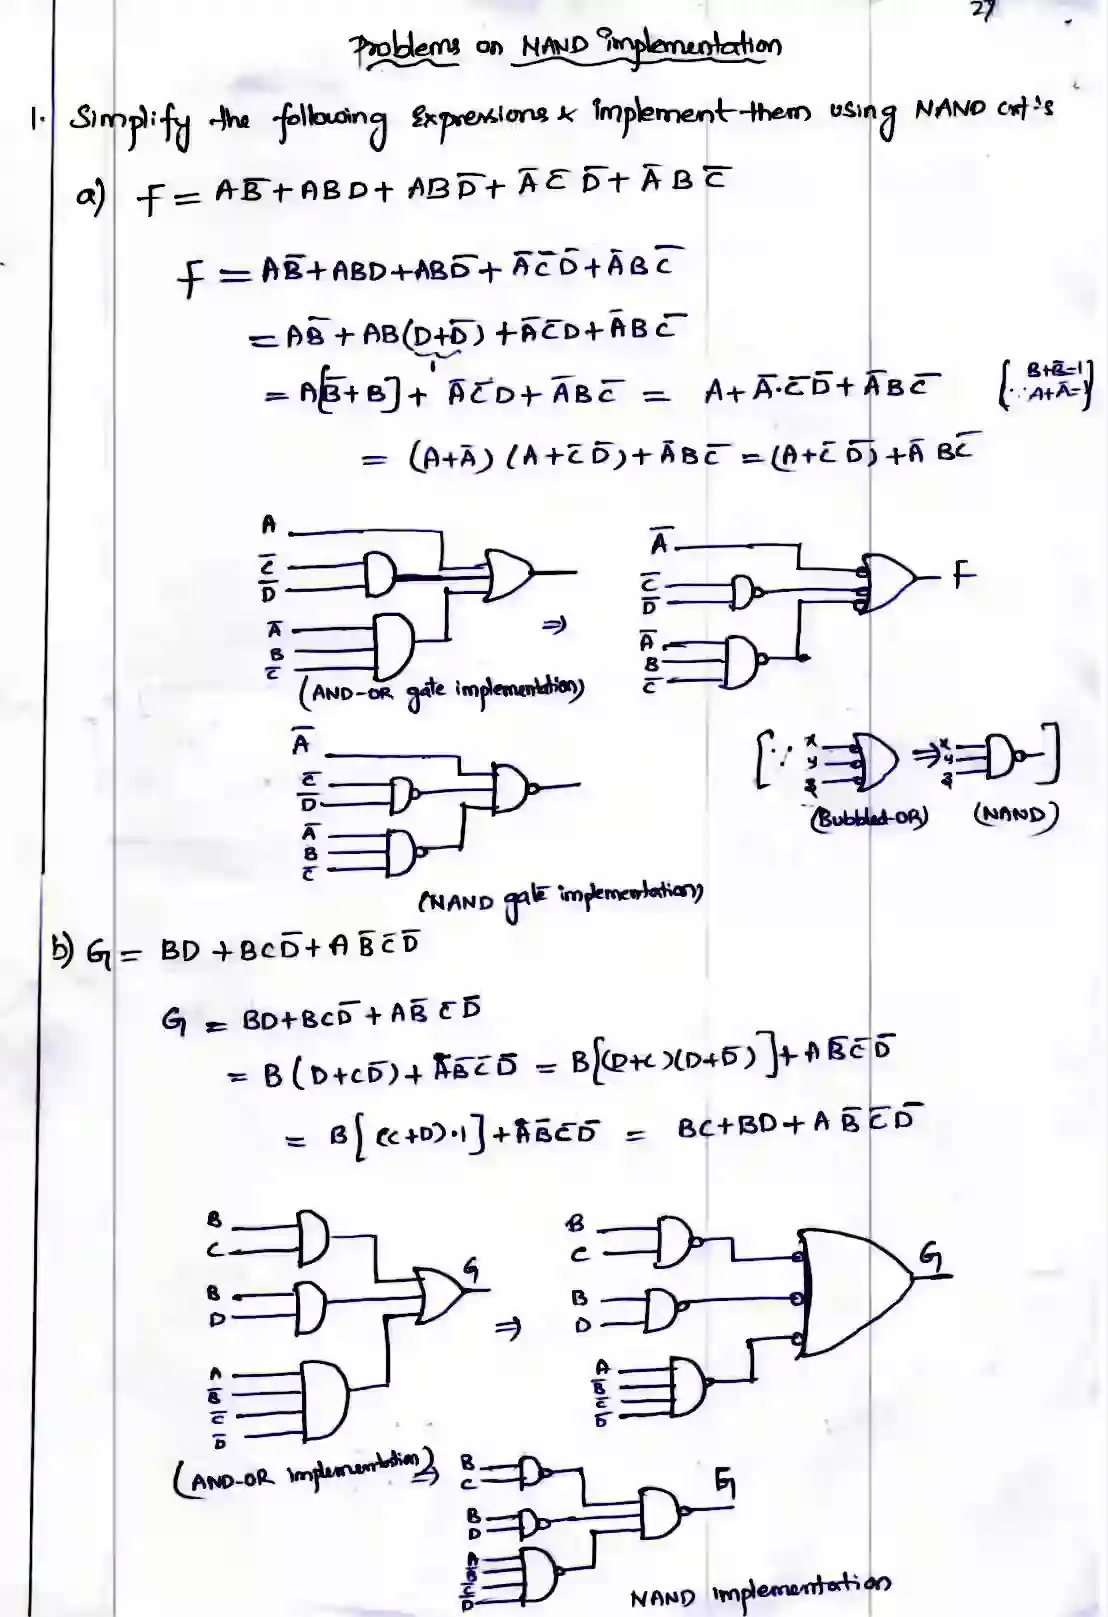 27
Problems on NAND implementation
1. Simplify the following Expressions & implement them using NAND ckt's
a) F = AB̅ + ABD + ABD̅ + A̅ C̅ D̅ + A̅ B C̅
F = AB̅ + ABD + ABD̅ + A̅ C̅ D̅ + A̅ B C̅
= AB̅ + AB(D+D̅) + A̅C̅D + A̅BC̅
1
= A[B̅+B] + A̅C̅D + A̅BC̅ = A + A̅·C̅D̅ + A̅BC̅ [∵ B+B̅=1 A+A̅=1]
= (A+A̅)(A+C̅D̅) + A̅BC̅ = (A+C̅D̅) + A̅ BC̅
A
C̅
D̅
A̅
B
C̅
⇒
(AND-OR gate implementation)
A̅
C̅
D̅
A̅
B
C̅
F
A̅
C̅
D̅
A̅
B
C̅
(NAND gate implementation)
[∵ x y z ⇒ x y z ]
(Bubbled-OR) (NAND)
b) G = BD + BCD̅ + A B̅ C̅ D̅
G = BD + BCD̅ + AB̅ C̅ D̅
= B(D+CD̅) + AB̅C̅D̅ = B[(D+C)(D+D̅)] + AB̅C̅D̅
= B[(C+D)·1] + AB̅C̅D̅ = BC + BD + A B̅ C̅ D̅
B
C
B
D
A
B̅
C̅
D̅
G
⇒
B
C
B
D
A
B̅
C̅
D̅
G
(AND-OR implementation) ⇒
B
C
B
D
A
B̅
C̅
D̅
G
NAND implementation